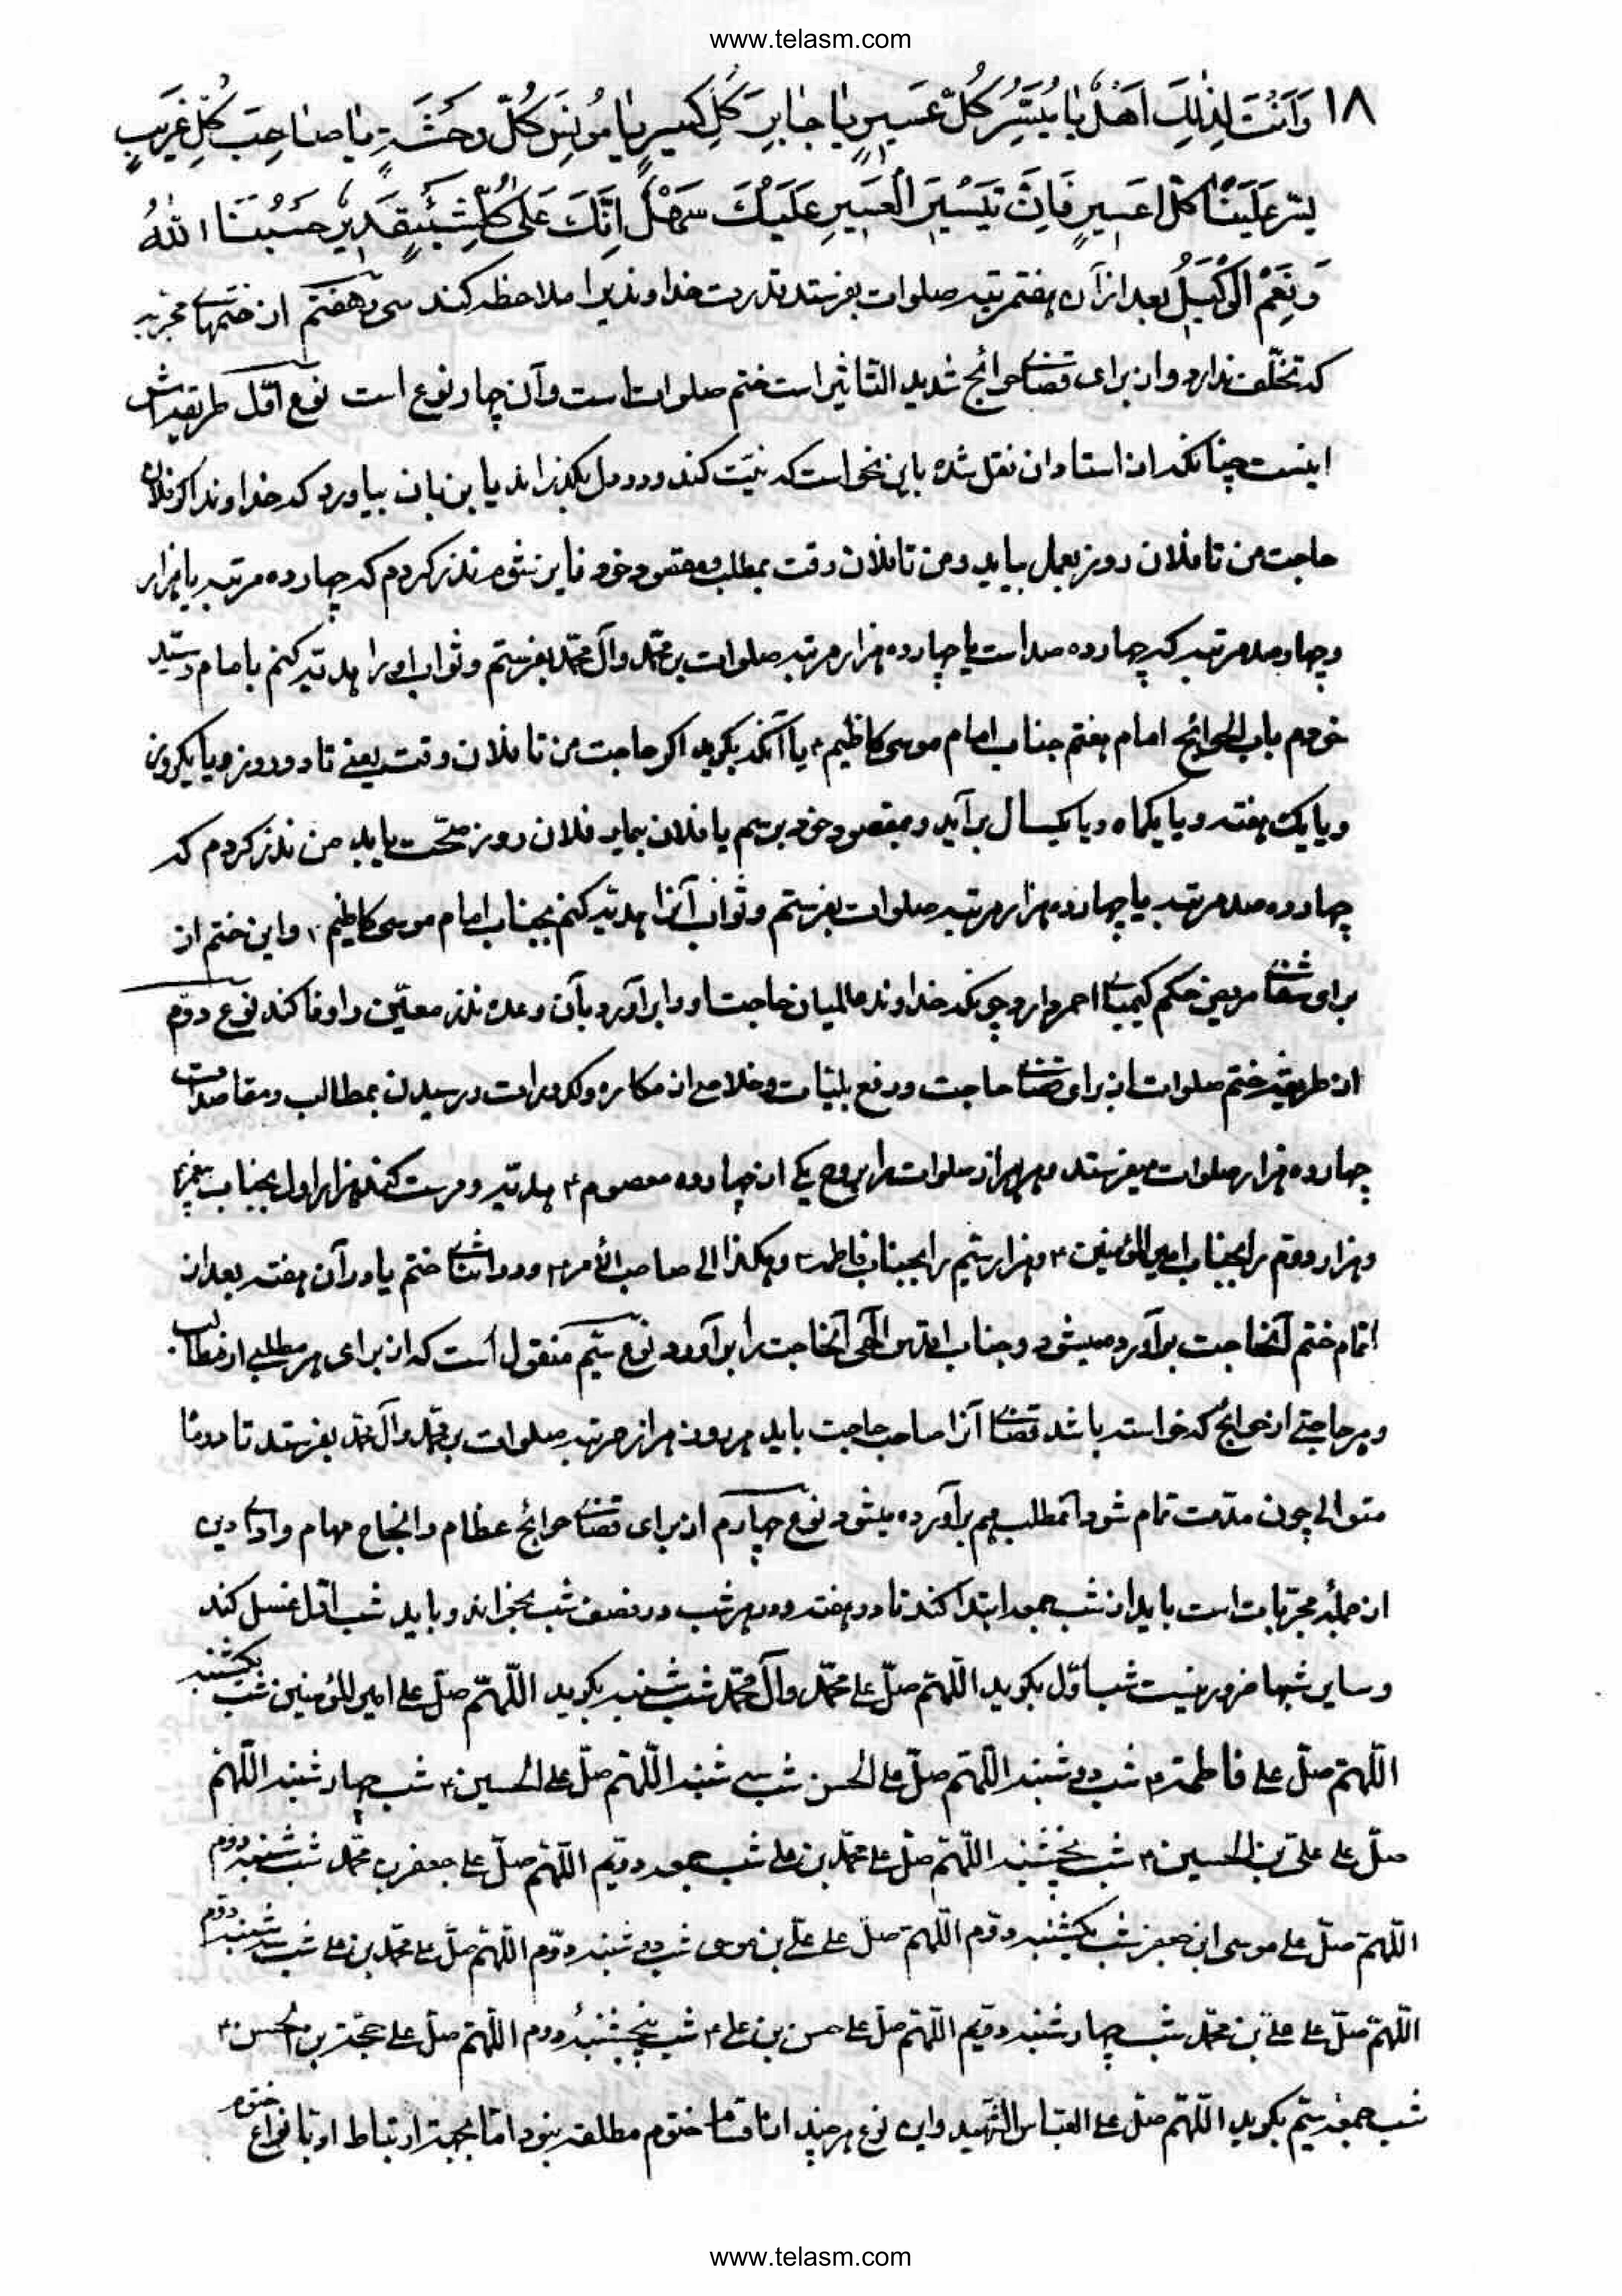 www.telasm.com
۱۸ وَاَنْتَ لِذٰلِكَ اَهْلٌ يَا مُيَسِّرَ كُلِّ عَسيرٍ يَا جَابِرَ كُلِّ كَسيرٍ يَا مُونِسَ كُلِّ وَحْشَةٍ يَا صَاحِبَ كُلِّ غَريبٍ
يَسِّر عَلَيْنَا كُلَّ عَسيرٍ فَاِنَّ تَيْسيرَ الْعَسيرِ عَلَيْكَ سَهْلٌ اِنَّكَ عَلىٰ كُلِّ شَيْئٍ قَديرٌ حَسْبُنَا اللّٰهُ
وَنِعْمَ الْوَكيلُ بعد از آن هفتمرتبه صلوات بفرستد قدرت خداوند را ملاحظه کند سی و هفتم از ختمهای مجربه
که تخلّف ندارد و از برای قضای حوائج شدید التّاثیر است ختم صلوات است و آن چهار نوع است نوع اوّل طریقه‌اش
اینست چنانکه از استادان نقل شده باین نحو است که نیّت کند و در دل بگذراند یا بزبان بیاورد که خداوندا اگر فلان
حاجت من تا فلان روز بعمل بیاید و من تا فلان وقت بمطلب و مقصود خود فایز شوم نذر کردم که چهارده مرتبه یا هزار
و چهارصد مرتبه که چهارده صد است یا چهارده هزار مرتبه صلوات بر محمّد وآل محمّد بفرستم و ثواب او را هدیّه کنم بامام و سیّد
خودم باب الحوائج امام هفتم جناب امام موسی کاظم ع یا آنکه بگوید اگر حاجت من تا فلان وقت یعنی تا دو روز و یا یکروز
و یا یک هفته و یا یکماه و یا یکسال برآید و بمقصود خود برسم یا فلان بیمار فلان روز صحّت یابد من نذر کردم که
چهارده صد مرتبه یا چهارده هزار مرتبه صلوات بفرستم و ثواب آنرا هدیّه کنم بجناب امام موسی کاظم ع و این ختم از
برای شفای مریض حکم کیمیای احمر دارد چونکه خداوند عالمیان حاجت او را برآورد بآن وعده نذر معیّن را وفا کند نوع دوّم
از طریقه ختم صلوات از برای قضای حاجت و رفع بلیّات و خلاصی از مکاره و کدورات و رسیدن بمطالب و مقاصد است
چهارده هزار صلوات میفرستد و هر هزار صلوات را بروح یکی از چهارده معصوم ع هدیّه و فرستد کند هزار اول بجناب پیغمبر
و هزار دوّم را بجناب امیرالمؤمنین ع و هزار سیّم را بجناب فاطمه ع و هکذا الی صاحب الأمر ع و در اثنای ختم یا در آن هفته بعد از
اتمام ختم آنحاجت برآورد میشود و جناب اقدس الٓهی آنحاجت را برآورد نوع سیّم منقول است که از برای هر مطلبی از مطالب
و هر حاجتی از حوائج که خواسته باشد قضای آنرا صاحب حاجت باید هر روز هزار مرتبه صلوات بر محمّد وآل محمّد بفرستد تا
متوالی چون مدّت تمام شود آنمطلب هم برآورده میشود نوع چهارم از برای قضای حوائج عظام و انجاح مهام و ادای دین
از جملهٔ مجرّبات است باید از شب جمعه ابتدا کند تا دو هفته و در هر شب در نصف شب بخواند و باید شب اوّل غسل کند
و سایر شبها ضرور نیست شب اوّل بگوید اللّهمّ صلّ علی محمّد وآل محمّد شب شنبه بگوید اللّهمّ صلّ علی امیرالمؤمنین شب یکشنبه
اللّهمّ صلّ علی فاطمة ع شب دوشنبه اللّهمّ صلّ علی الحسن شب سی شنبه اللّهمّ صلّ علی الحسین ع شب چهار شنبه اللّهمّ
صلّ علی علیّ بن الحسین ع شب پنجشنبه اللّهمّ صلّ علی محمّد بن علی شب جمعه دویّم اللّهمّ صلّ علی جعفر بن محمّد شب شنبه دوّم
اللّهمّ صلّ علی موسی ابن جعفر شب یکشنبه دوّم اللّهمّ صلّ علی علیّ بن موسی شب دو شنبه دوّم اللّهمّ صلّ علی محمّد بن علی شب سه شنبه دوّم
اللّهمّ صلّ علی علیّ بن محمّد شب چهار شنبه دویّم اللّهمّ صلّ علی حسن بن علی ع شب پنجشنبهٔ دوم اللّهمّ صلّ علی حجّة بن الحسن ع
شب جمعه سیّم بگوید اللّهمّ صلّ علی العبّاس الشّهید و این نوع هر چند از اقسام ختوم مطلقه نبود امّا بجهة ارتباط او با انواع ختوم
www.telasm.com